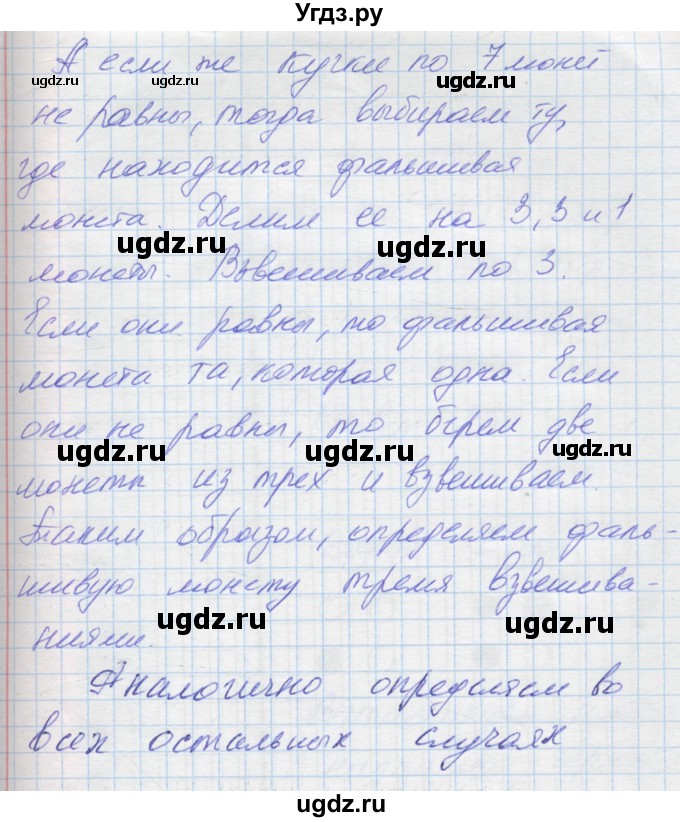 Угдз.ру
А если же кучки по 7 монет
не равны, тогда выбираем ту,
где находится фальшивая
монета. Делим ее на 3, 3 и 1
монеты. Взвешиваем по 3.
Если они равны, то фальшивая
монета та, которая одна. Если
они не равны, то берем две
монеты из трех и взвешиваем.
Таким образом, определяем фаль-
шивую монету тремя взвешива-
ниями.
Аналогично определяем во
всех остальных случаях
ugdz.ru
ugdz.ru
ugdz.ru
ugdz.ru
ugdz.ru
ugdz.ru
ugdz.ru
ugdz.ru
ugdz.ru
ugdz.ru
ugdz.ru
ugdz.ru
ugdz.ru
ugdz.ru